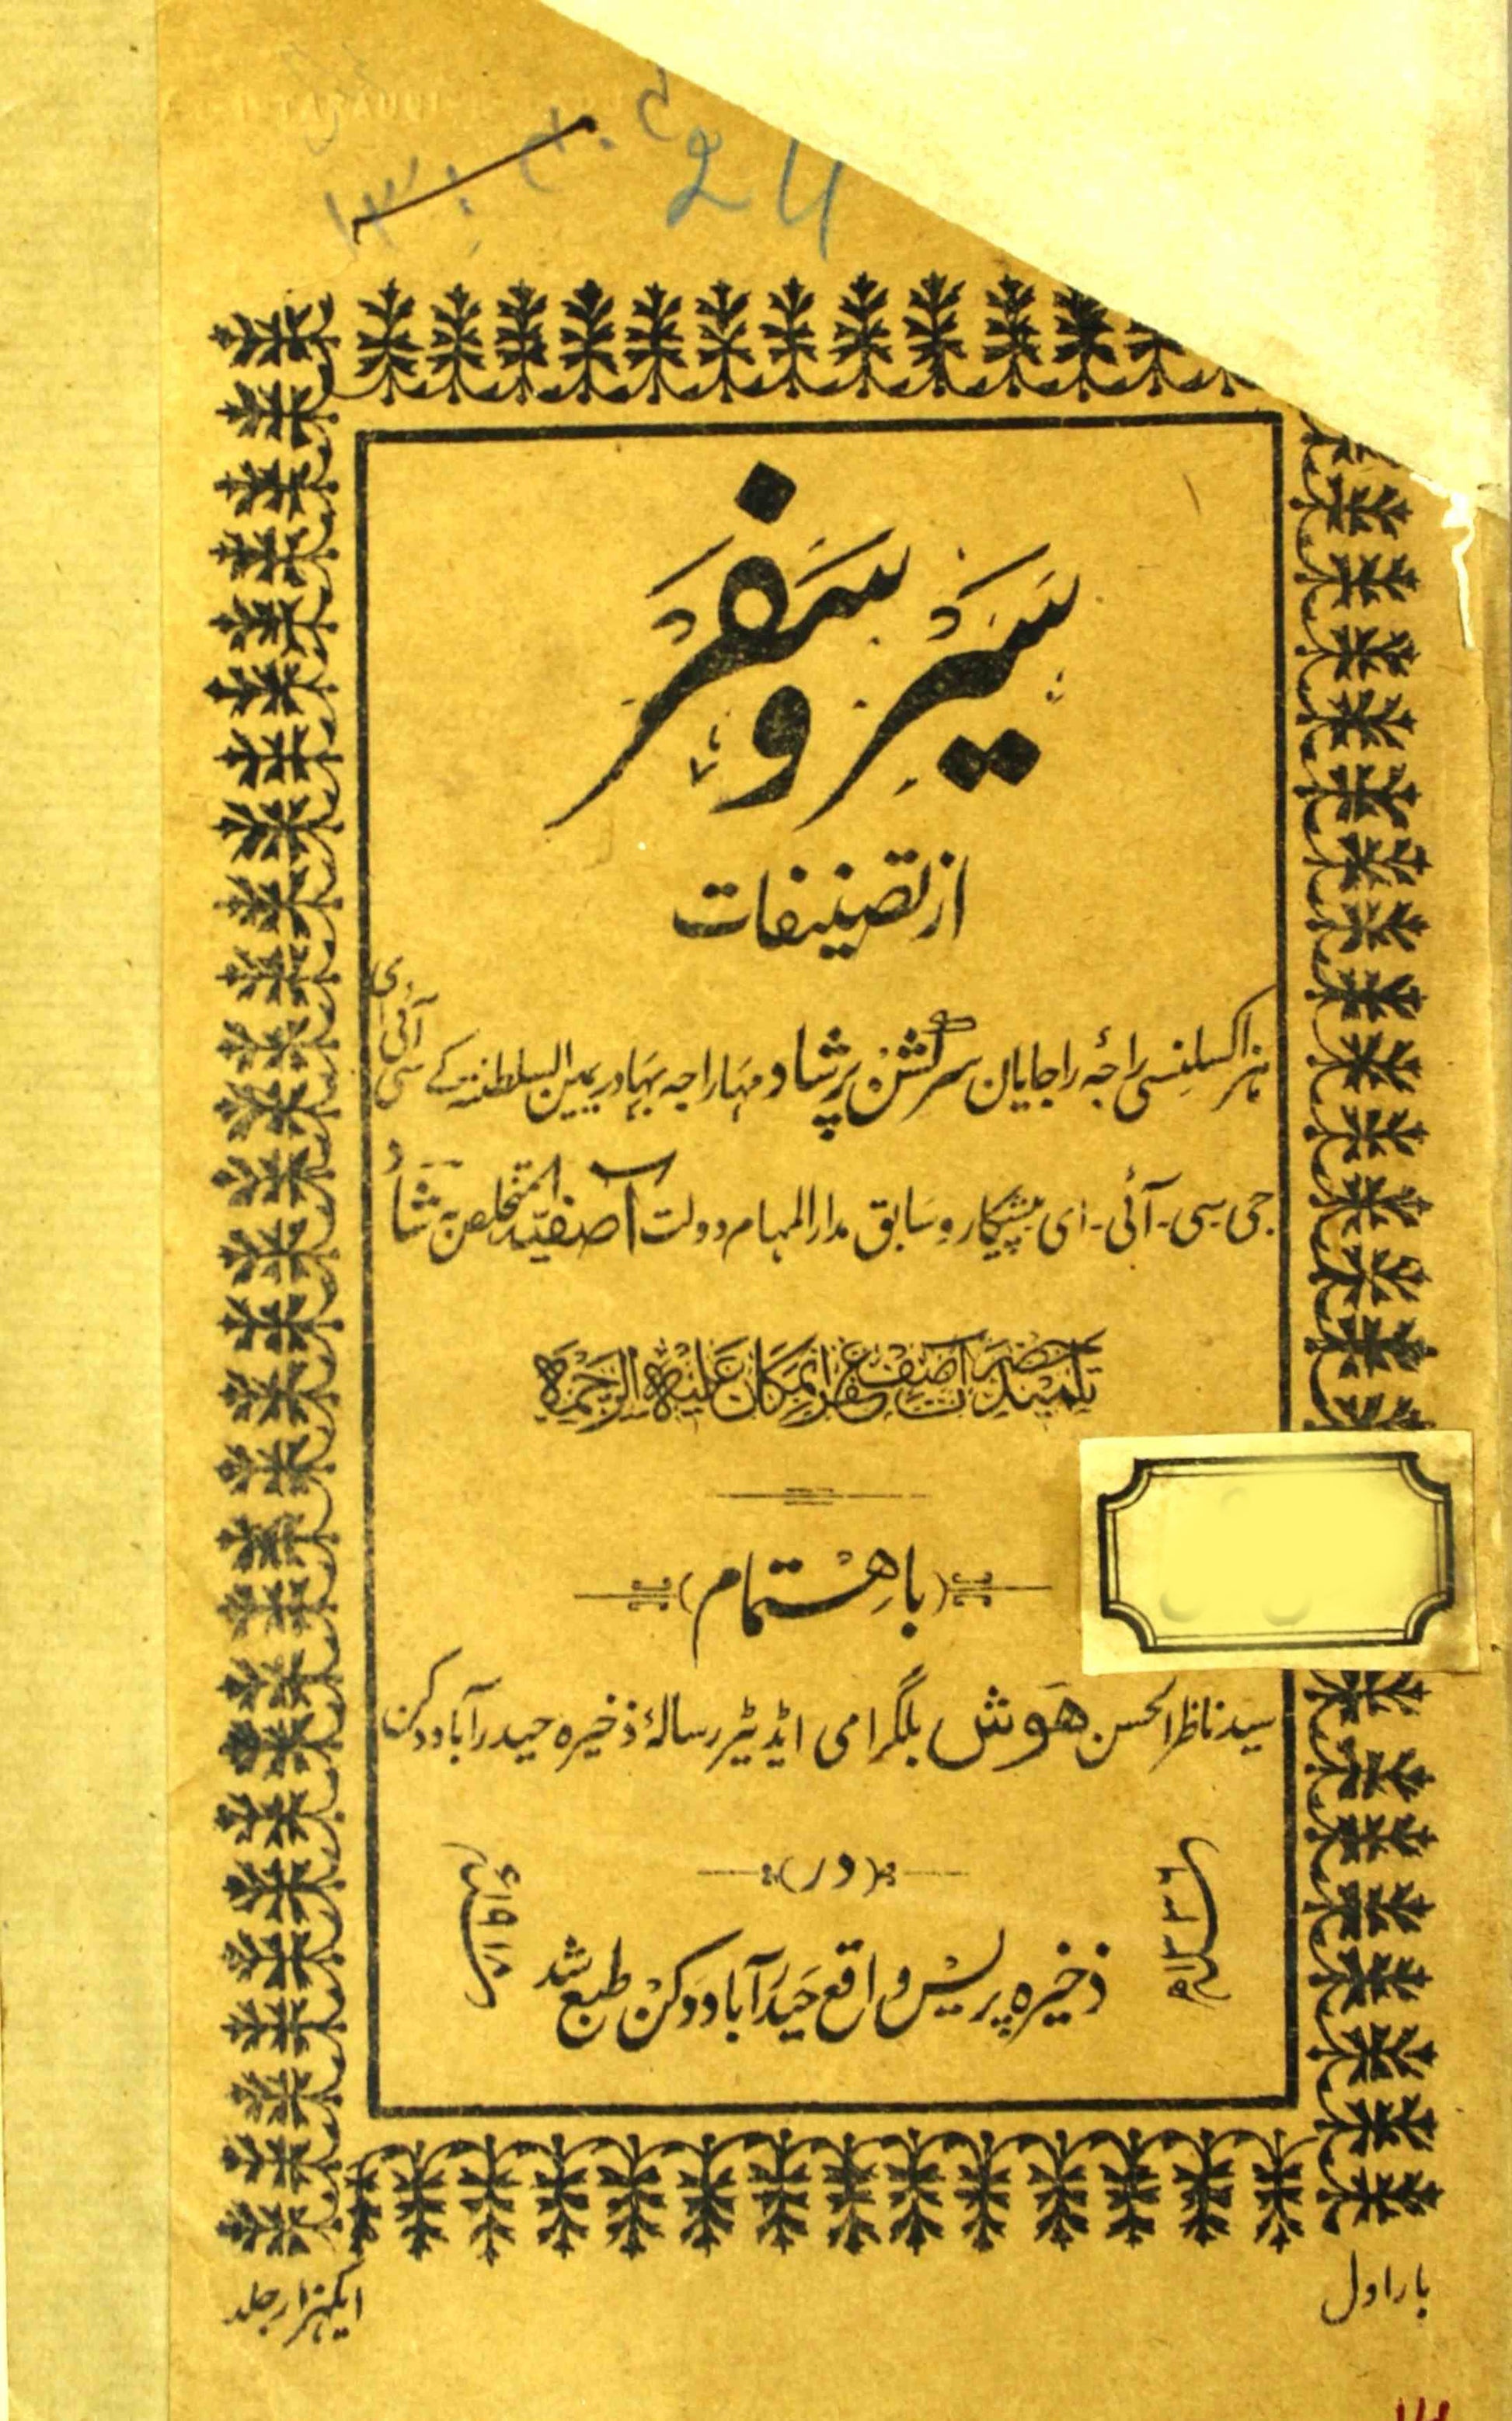 سیر و سفر
از تصنیفات
ہز اکسلنسی راجۂ راجایان سر کشن پرشاد مہاراجہ بہادر یمین السلطنۃ کے سی آئی ای
جی۔سی۔آئی۔ای پیشکار و سابق مدار المہام دولت آصفیہ المتخلص بہ شاد
تلمیذ حضرت آصف غفران مکان علیہ الرحمہ
(باہتمام)
سید ناظر الحسن ہوش بلگرامی ایڈیٹر رسالۂ ذخیرہ حیدرآباد دکن
(در)
ذخیرہ پریس واقع حیدرآباد دکن طبع شد
بار اول
ایکہزار جلد